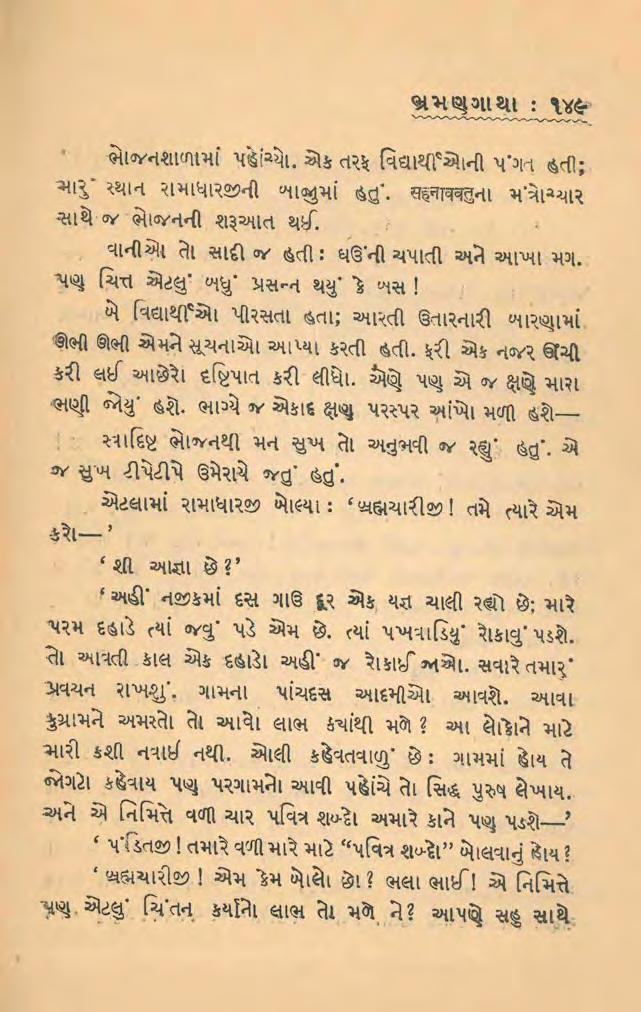 ભ્રમણગાથા : ૧૪૯
ભોજનશાળામાં પહોંચ્યો. એક તરફ વિદ્યાર્થીઓની પંગત હતી;
મારું સ્થાન રામાધારજીની બાજુમાં હતું. सहनाववतुના મંત્રોચ્ચાર
સાથે જ ભોજનની શરૂઆત થઈ.
વાનીઓ તો સાદી જ હતી : ઘઉંની ચપાતી અને આખા મગ.
પણ ચિત્ત એટલું બધું પ્રસન્ન થયું કે બસ !
બે વિદ્યાર્થીઓ પીરસતા હતા; આરતી ઉતારનારી બારણામાં
ઊભી ઊભી એમને સૂચનાઓ આપ્યા કરતી હતી. ફરી એક નજર ઊંચી
કરી લઈ આછેરો દૃષ્ટિપાત કરી લીધો. એણે પણ એ જ ક્ષણે મારા
ભણી જોયું હશે. ભાગ્યે જ એકાદ ક્ષણ પરસ્પર આંખો મળી હશે—
સ્વાદિષ્ટ ભોજનથી મન સુખ તો અનુભવી જ રહ્યું હતું. એ
જ સુખ ટીપેટીપે ઉમેરાયે જતું હતું.
એટલામાં રામાધારજી બોલ્યા : ‘બ્રહ્મચારીજી ! તમે ત્યારે એમ
કરો—’
‘શી આજ્ઞા છે ?’
‘અહીં નજીકમાં દસ ગાઉ દૂર એક યજ્ઞ ચાલી રહ્યો છે; મારે
પરમ દહાડે ત્યાં જવું પડે એમ છે. ત્યાં પખવાડિયું રોકાવું પડશે.
તો આવતી કાલ એક દહાડો અહીં જ રોકાઈ જાઓ. સવારે તમારું
પ્રવચન રાખશું. ગામના પાંચદસ આદમીઓ આવશે. આવા
કુગ્રામને અમરતો તો આવો લાભ ક્યાંથી મળે ? આ લોકોને માટે
મારી કશી નવાઈ નથી. ઓલી કહેવતવાળું છે : ગામમાં હોય તે
જોગટો કહેવાય પણ પરગામનો આવી પહોંચે તો સિદ્ધ પુરુષ લેખાય.
અને એ નિમિત્તે વળી ચાર પવિત્ર શબ્દો અમારે કાને પણ પડશે—’
‘પંડિતજી ! તમારે વળી મારે માટે “પવિત્ર શબ્દો” બોલવાનું હોય ?
‘બ્રહ્મચારીજી ! એમ કેમ બોલો છો ? ભલા ભાઈ ! એ નિમિત્તે
પણ એટલું ચિંતન કર્યાનો લાભ તો મળે ને ? આપણે સહુ સાથે